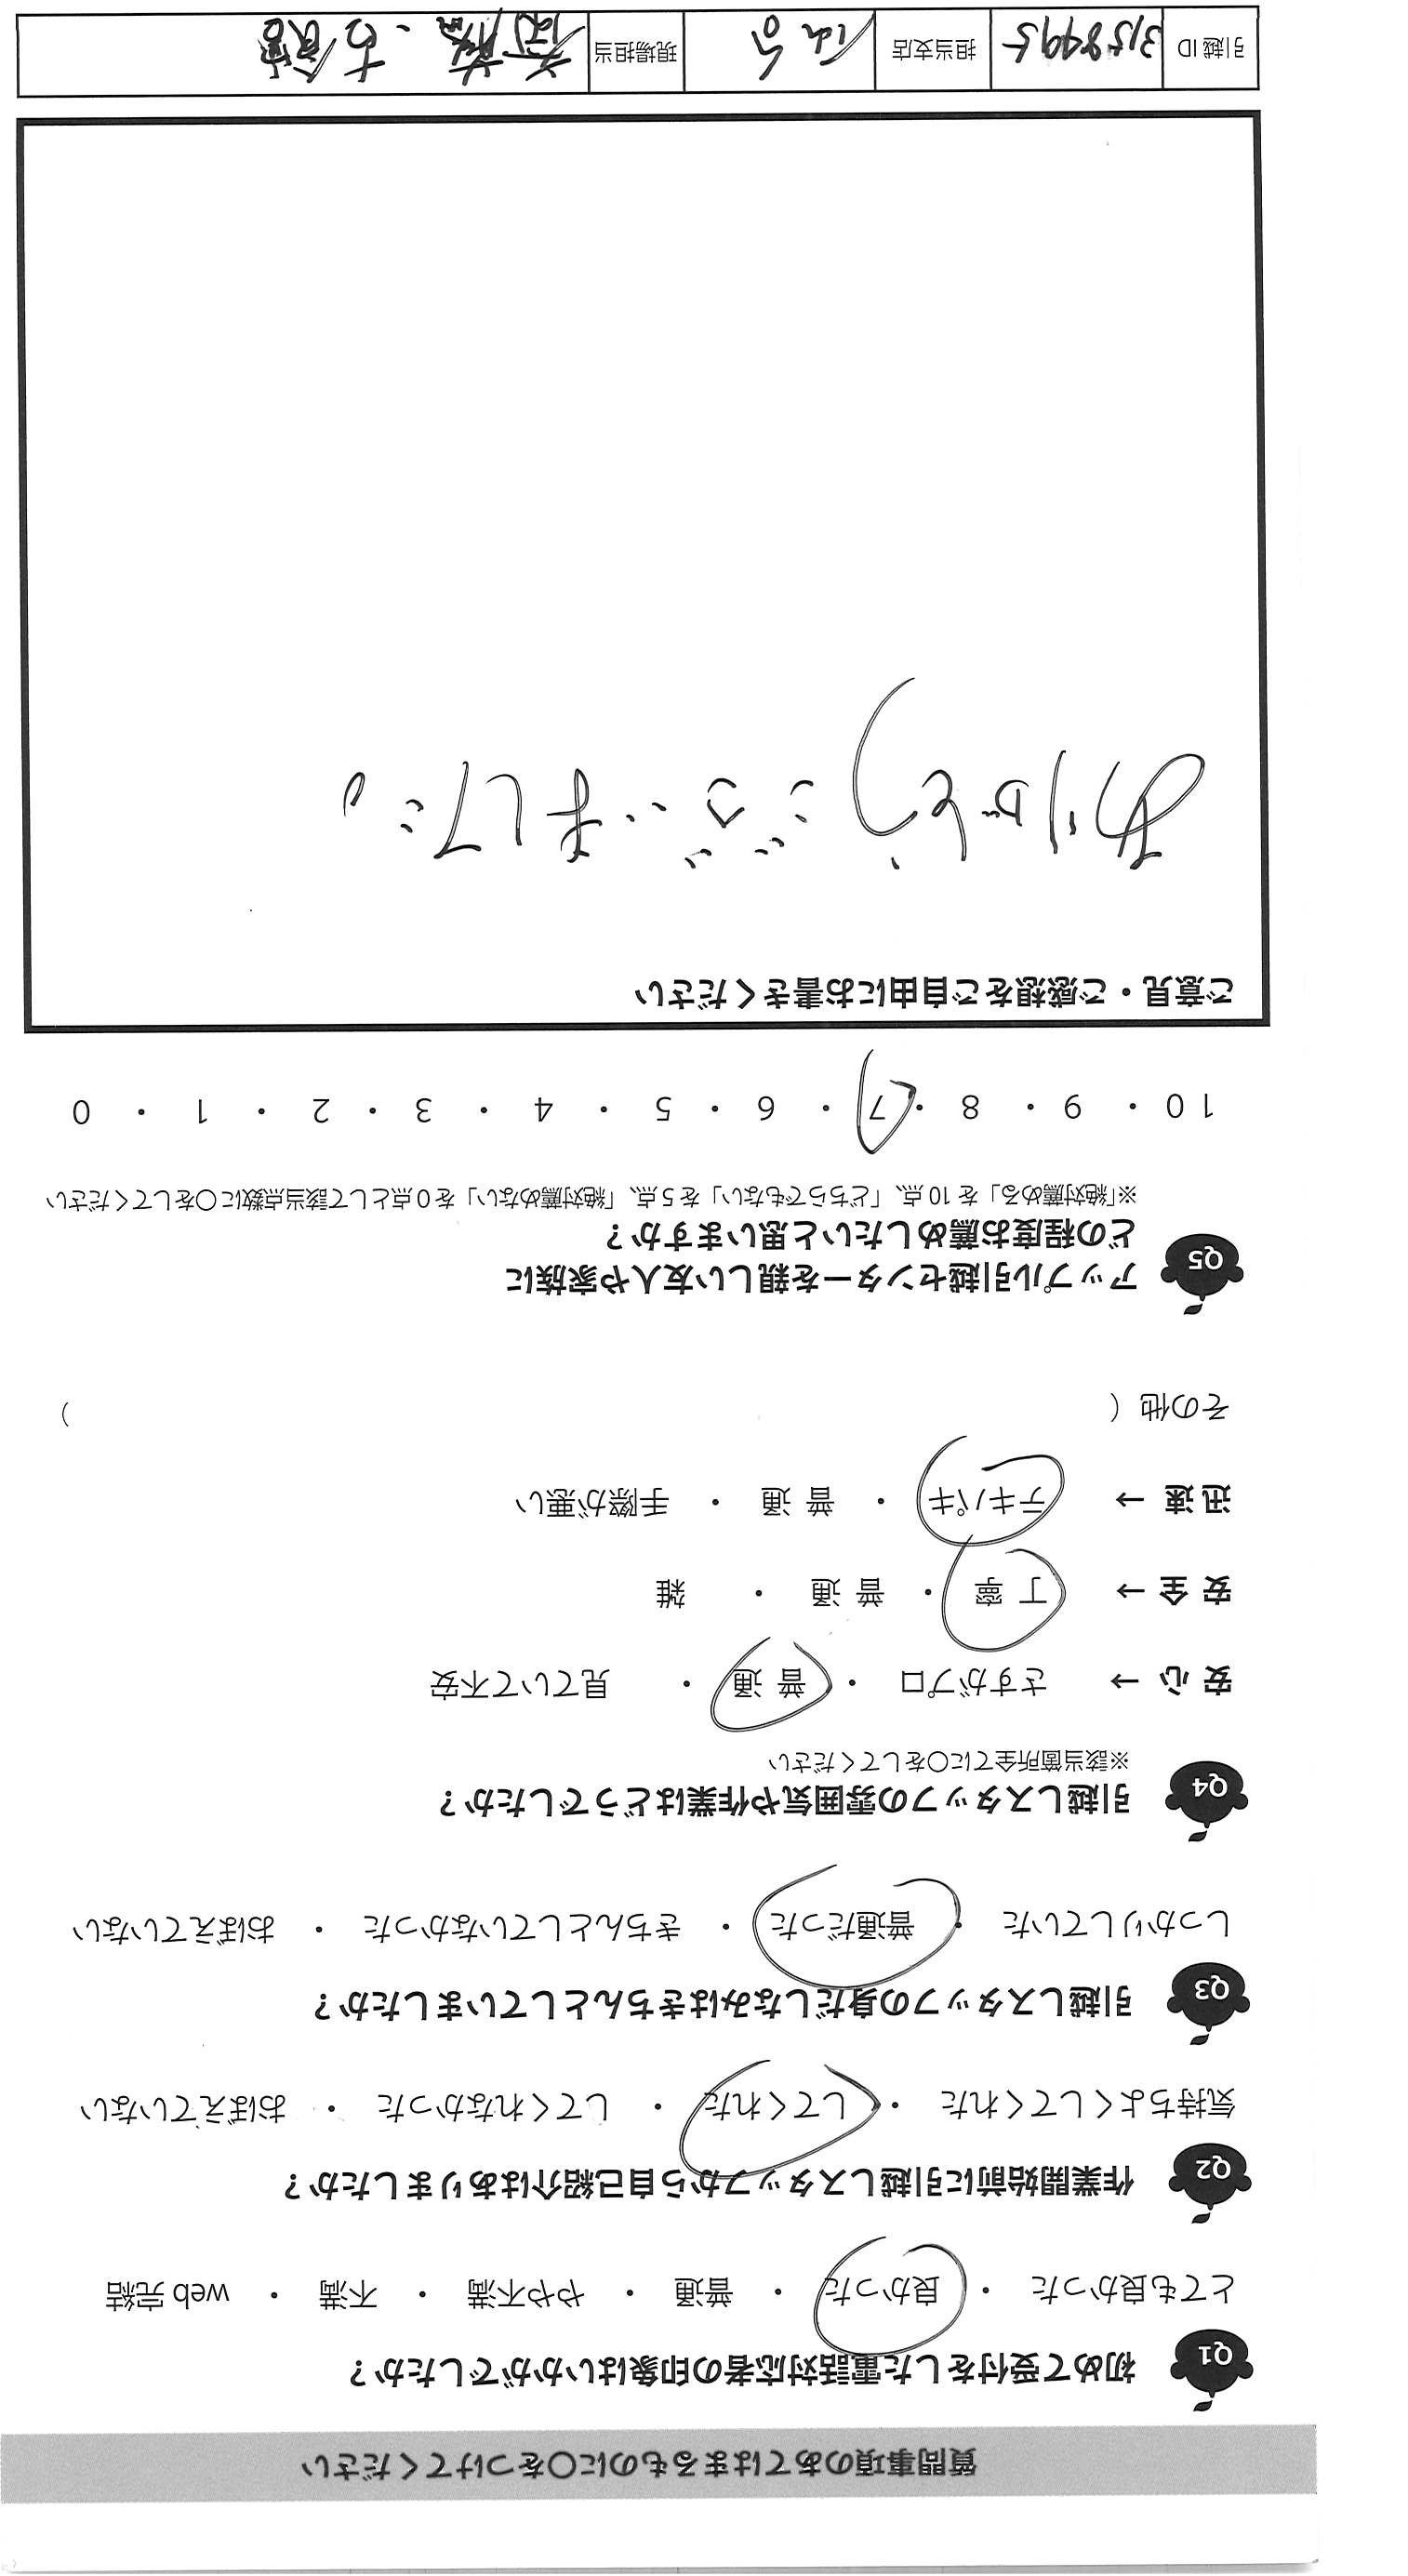 質問事項のあてはまるものに〇をつけてください
Q1 初めて受付をした電話対応者の印象はいかがでしたか?
とても良かった ・ 良かった ・ 普通 ・ やや不満 ・ 不満 ・ web 完結
Q2 作業開始前に引越しスタッフから自己紹介はありましたか?
気持ちよくしてくれた ・ してくれた ・ してくれなかった ・ おぼえていない
Q3 引越しスタッフの身だしなみはきちんとしていましたか?
しっかりしていた ・ 普通だった ・ きちんとしていなかった ・ おぼえていない
Q4 引越しスタッフの雰囲気や作業はどうでしたか?
※該当箇所全てに〇をしてください
安 心 → さすがプロ ・ 普 通 ・ 見ていて不安
安 全 → 丁 寧 ・ 普 通 ・ 雑
迅 速 → テキパキ ・ 普 通 ・ 手際が悪い
その他 ( )
Q5 アップル引越センターを親しい友人や家族に
どの程度お薦めしたいと思いますか?
※「絶対薦める」を 10 点、「どちらでもない」を 5 点、「絶対薦めない」を 0 点として該当点数に〇をしてください
10 ・ 9 ・ 8 ・ 7 ・ 6 ・ 5 ・ 4 ・ 3 ・ 2 ・ 1 ・ 0
ご意見・ご感想をご自由にお書きください
ありがとうございました。
引越 ID 3158495 担当支店 現場担当